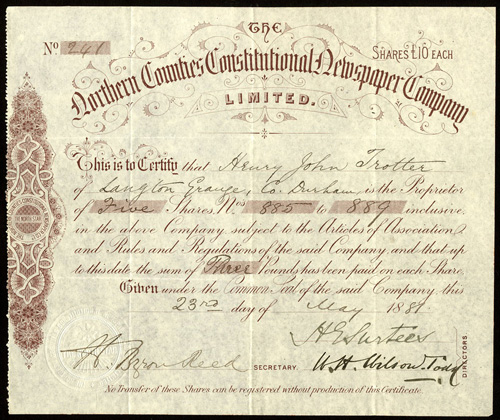 THE
No 241
SHARES £10 EACH
Northern Counties Constitutional Newspaper Company
LIMITED.
This is to Certify that Henry John Trotter
of Langton Grange, Co. Durham is the Proprietor
of Five Shares Nos 885 to 889 inclusive
in the above Company, subject to the Articles of Association,
and Rules and Regulations of the said Company, and that up
to this date the sum of Three Pounds has been paid on each Share.
Given under the Common Seal of the said Company, this
23rd day of May 1881
H E Surtees
H. Byron Reed SECRETARY. W. H. Wilson-Todd
DIRECTORS
No Transfer of these Shares can be registered without production of this Certificate.